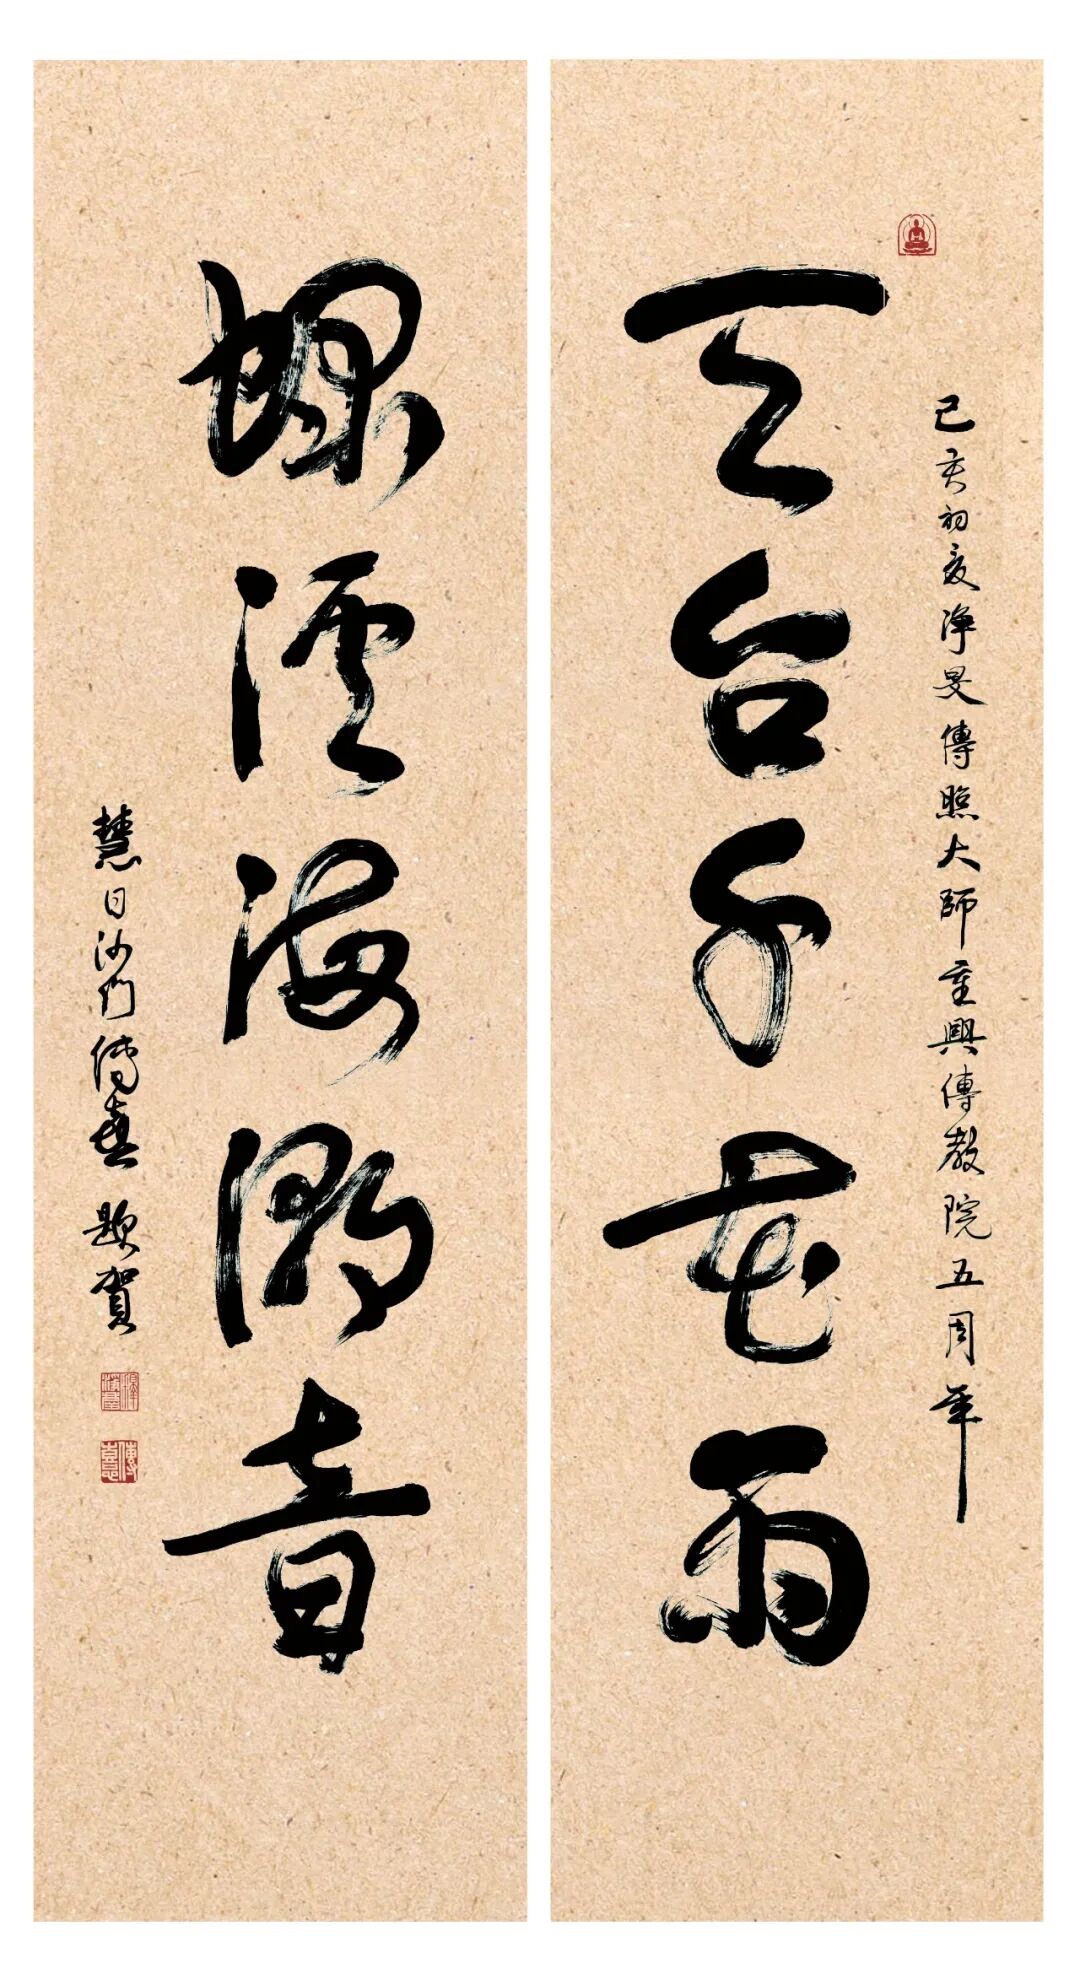 己亥初夏淨旻傳照大師重興傳教院五周年
天台千花雨
螺溪海潮音
慧日沙門傳喜題賀